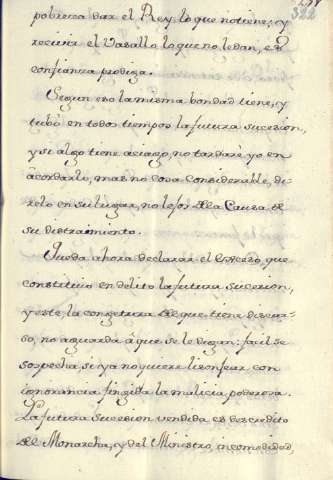 322
pobreza dar el Rey lo que no tiene; y
recivir el Vasallo lo que no le dan, es
confianza prodiga.
Segun eso la misma bondad tiene, y
tubo en todos tiempos la futura sucesion,
y si algo tiene aciago, no tardaré yo en
acordarlo, mas no cosa considerable, di-
relo en su lugar, no lejos de la Causa de
su
Queda ahora declarar el exceso, que
constituio en delito la futura sucesion,
y este, la congetura del que tiene discur-
so, no aguarda á que se le digan: facil se
sospecha, si ya no quiere lisonjear con
ignorancia fingida la malicia poderosa.
La futura Sucesion vendida es descredito
del Monarcha, y del Ministro, incomodidad,